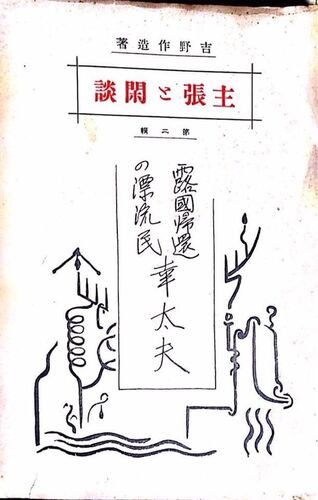 著造作野吉
談閑と張主
輯二第
露國帰還
の漂流民
幸太夫